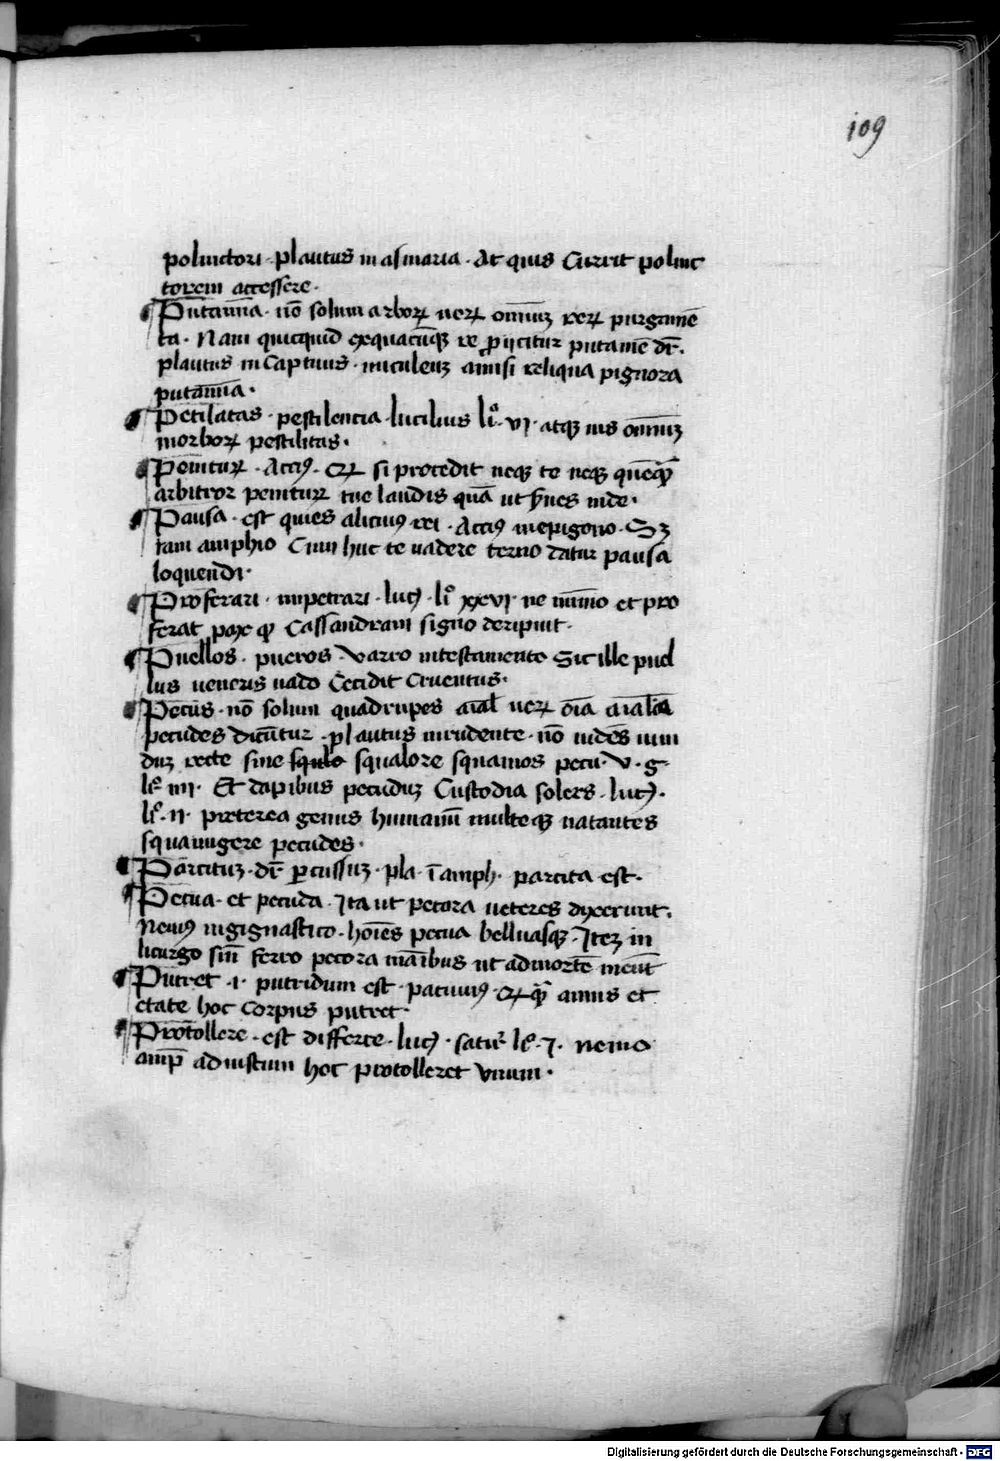 109
polinctori · plautus in asinaria · At quis Currit polinc
torem accessere ·
Putamīa · nō solum arboꝝ ueꝝ omniuꝫ reꝝ purgamē
ta · Nam quicquid exquacūqꝫ re ꝓijcitur putamē dr̄ ·
plautus in Captiuis · nuculeuꝫ amisi reliqua pignora
putamīa ·
Petilatas · pestilencia · lucilius li° · vi · atqꝫ ius omniuꝫ
morboꝝ pestilitas ·
Penituꝝ · Acciꝯ · si procedit neqꝫ te neqꝫ quēqꝫ̄
arbitror penituꝝ tue laudis quā ut
Pausa · est quies alicuiꝯ rei · Acciꝯ inepigono · Sꝫ
iam amphio Cum huc te uadere terno datur pausa
loquendi ·
Proferari · impetrari · lucꝯ · li° xxvi · ne minimo et pro
ferat pace ꝙ Cassandram signo deripuit ·
Puellos · pueros · Varro intestamento Sic ille puel
lus ueneris uado Cecidit cruentus ·
Pecus · nō solum quadrupes aial ueꝝ oīa aialia
pecudes dicūtur · plautus inrudente · nō uides num
duꝫ recte sine squalore squamos pecu · v · g ·
l° · iiii · Et dapibus pecuduꝫ Custodia solers · lucꝯ ·
l° · ii · preterea genus humanū multeqꝫ natantes
squamigere pecudes ·
Parcituꝫ · dr̄ ꝑcussuꝫ · pla · ī amph · parcita est ·
Pecua · et pecuda · Ita ut pecora ueteres dixerunt ·
Neuiꝯ ingignastico · hoīes pecua belluasqꝫ · Iteꝫ in
licurgo sin̄ ferro pecora manibus ut admortē meūt
Putret · i · putridum est · pacuuiꝯ · annis et
etate hoc corpus putret ·
Protollere · est differre · lucꝯ · satir l° · i · nemo
adiustum hoc protolleret Virum ·
Digitalisierung gefördert durch die Deutsche Forschungsgemeinschaft · DFG